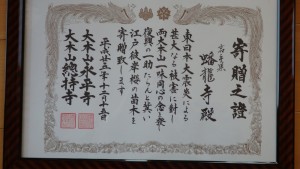 寄贈之證
蟠龍寺殿
東日本大震災による
甚大なる被害に対し
両大本山一味同心の念を捧げ
復興の一助たらんと冀い
江戸彼岸桜の苗木を
寄贈致します
平成廿五年十二月廿五日
大本山永平寺
大本山總持寺